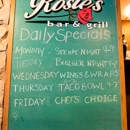 Rosie's
bar & grill
Daily Specials
MONDAY - STEAK NIGHT 4-9
TUESDAY - BURGER NIGHT 4-9
WEDNESDAY WINGS & WRAPS
THURSDAY TACO BOWL 4-9
FRIDAY CHEF'S CHOICE